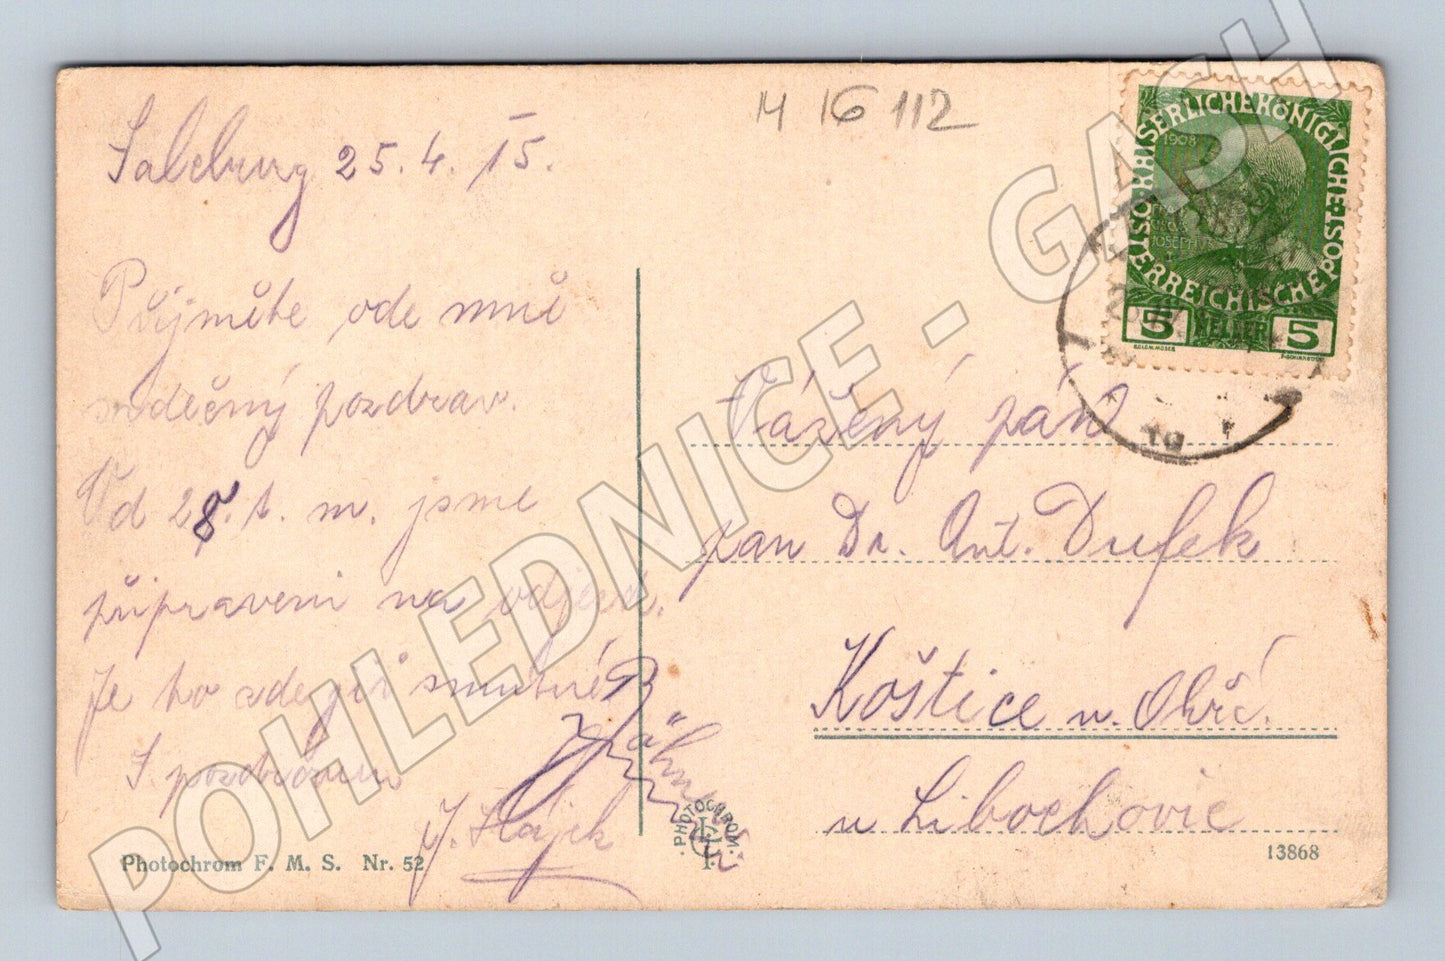 M 16 112
Salcburg 25. 4. 15.
Přijměte ode mně
srdečný pozdrav.
Od 28. t. m. jsme
připraveni na odjezd.
Je to zde již smutné.
S pozdravem
J. Hájek
Photochrom F. M. S. Nr. 52
PHOTOCHROM
ÖSTERREICHISCHE POST KAISERLICHE KÖNIGLICHE
1908
5 HELLER 5
19
Vážený pán
pan Dr. Ant. Dufek
Koštice n. Ohří.
u Libochovic
13868
POHLEDNICE - GASH